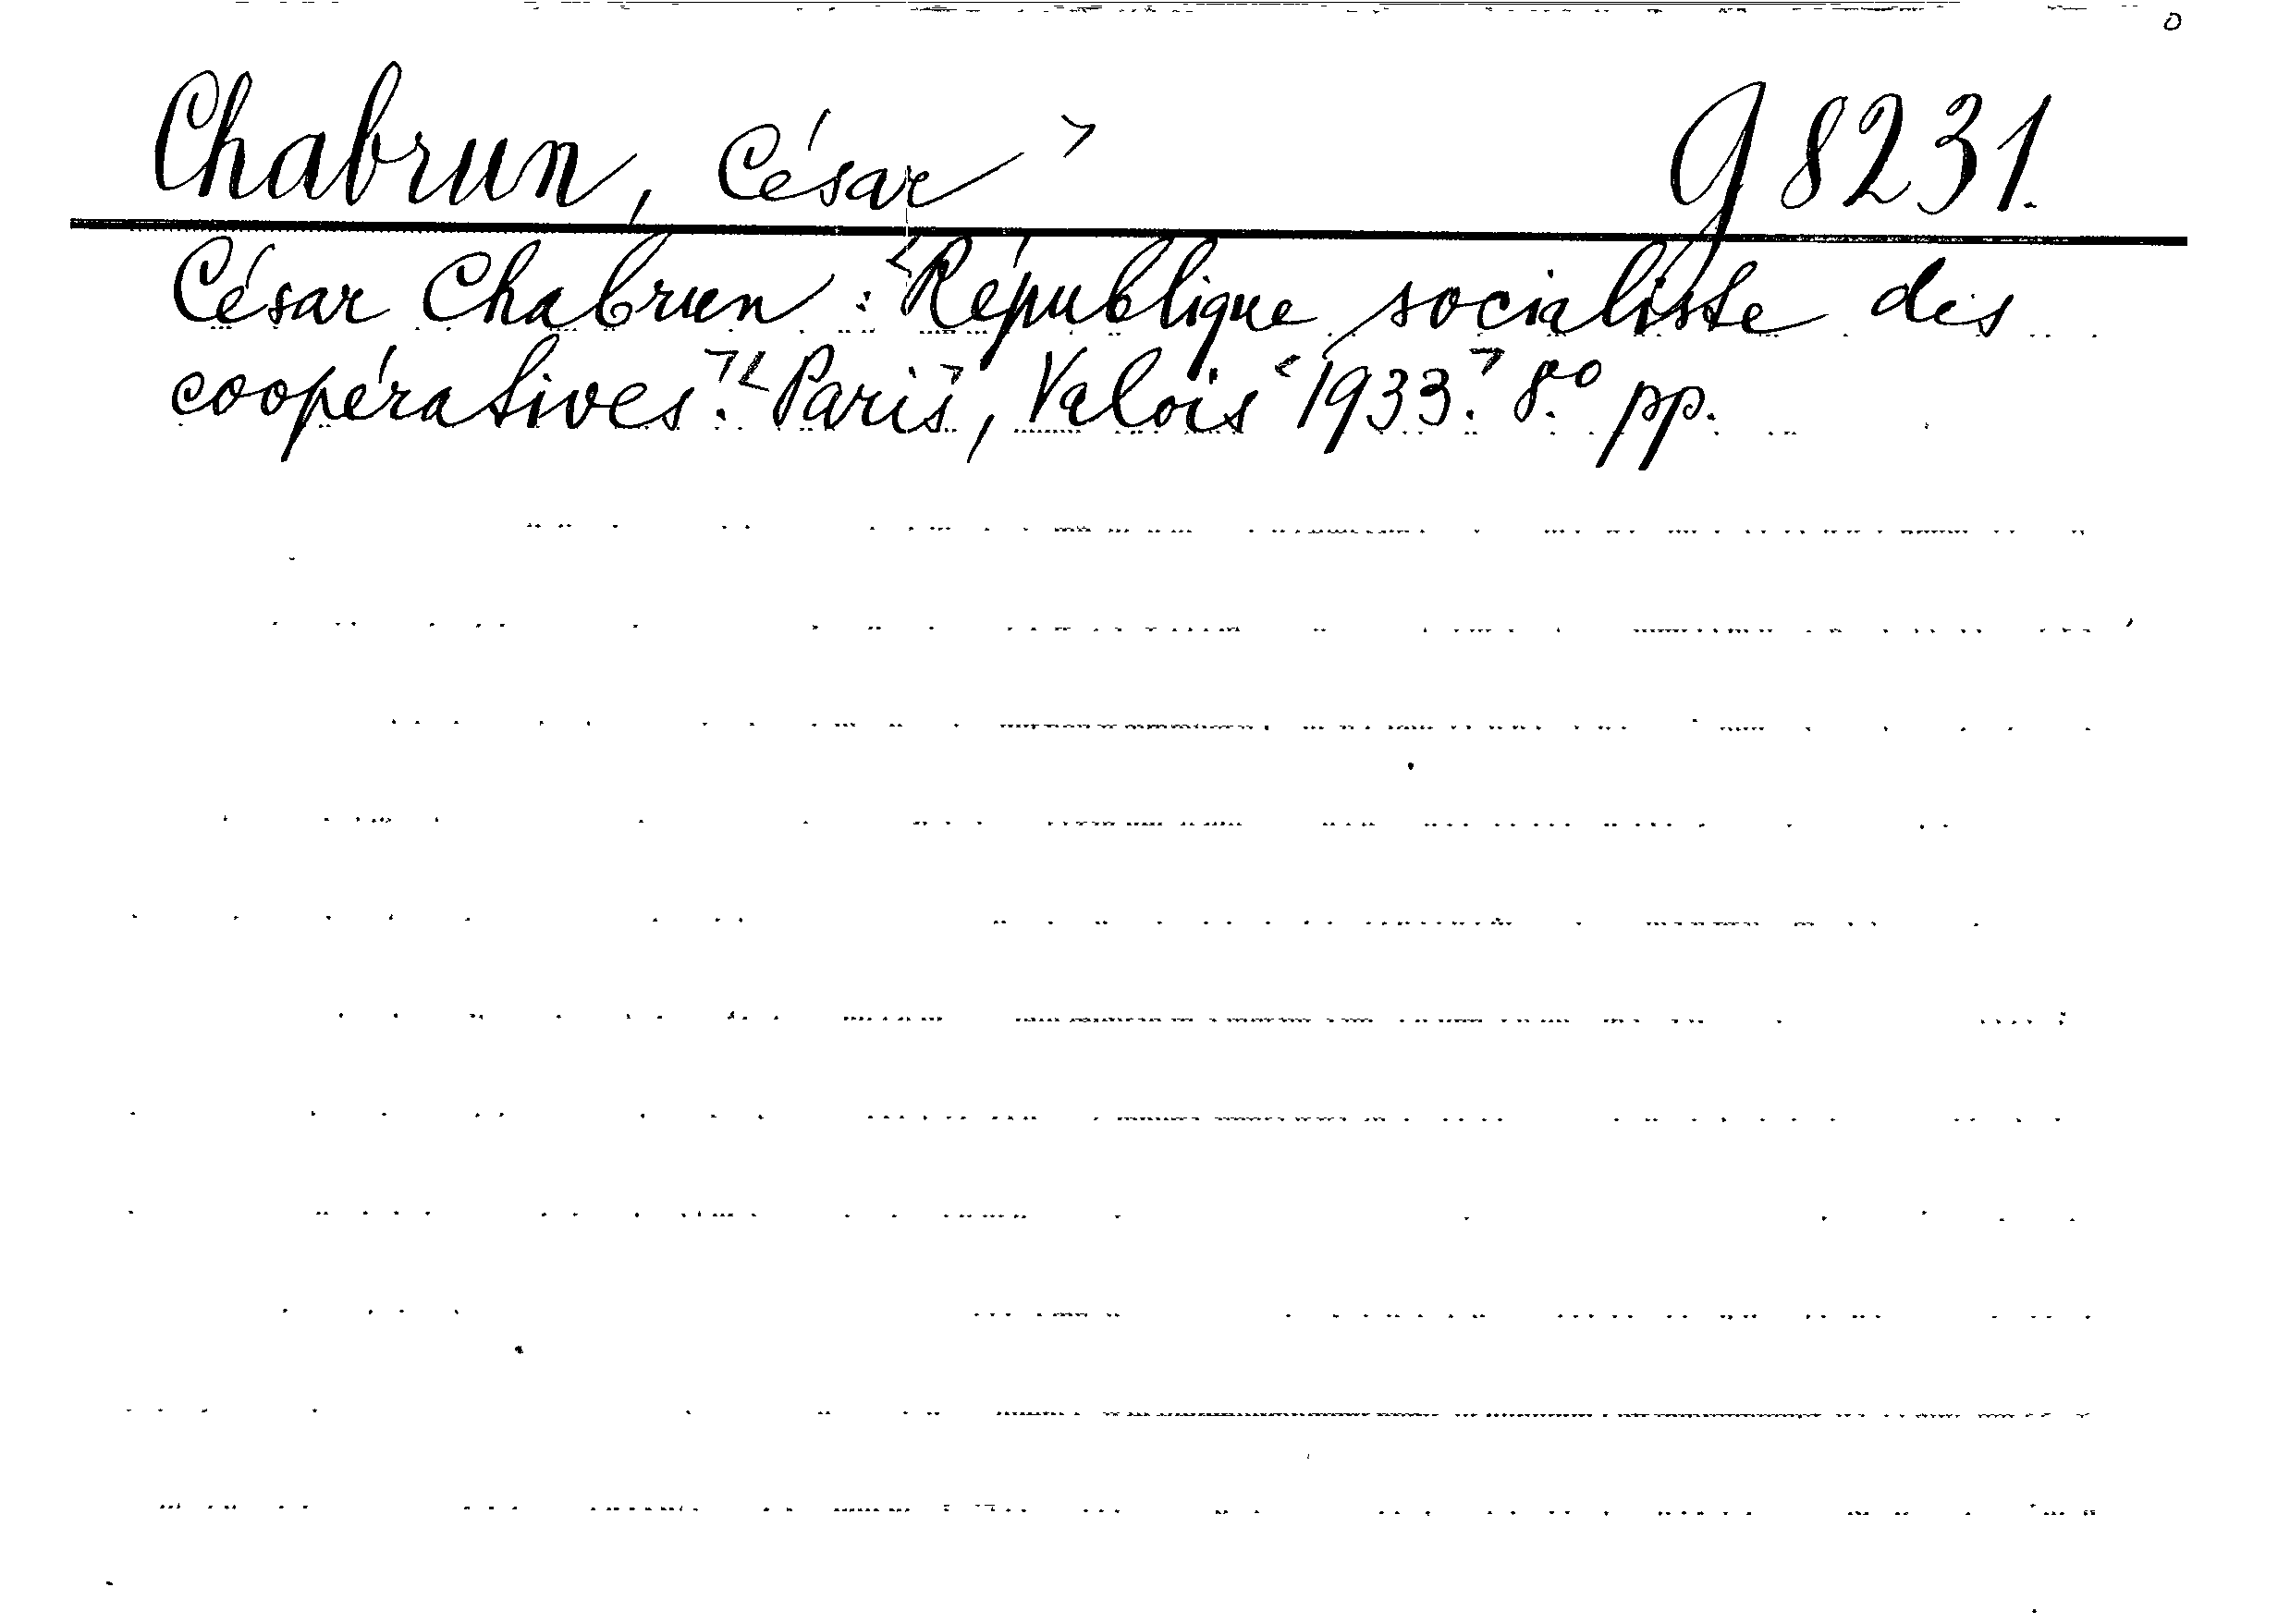 Chabrun, César > g 8231.
César Chabrun : <République socialiste des
coopératives.> <Paris>, Valois <1933.> 8.° pp.